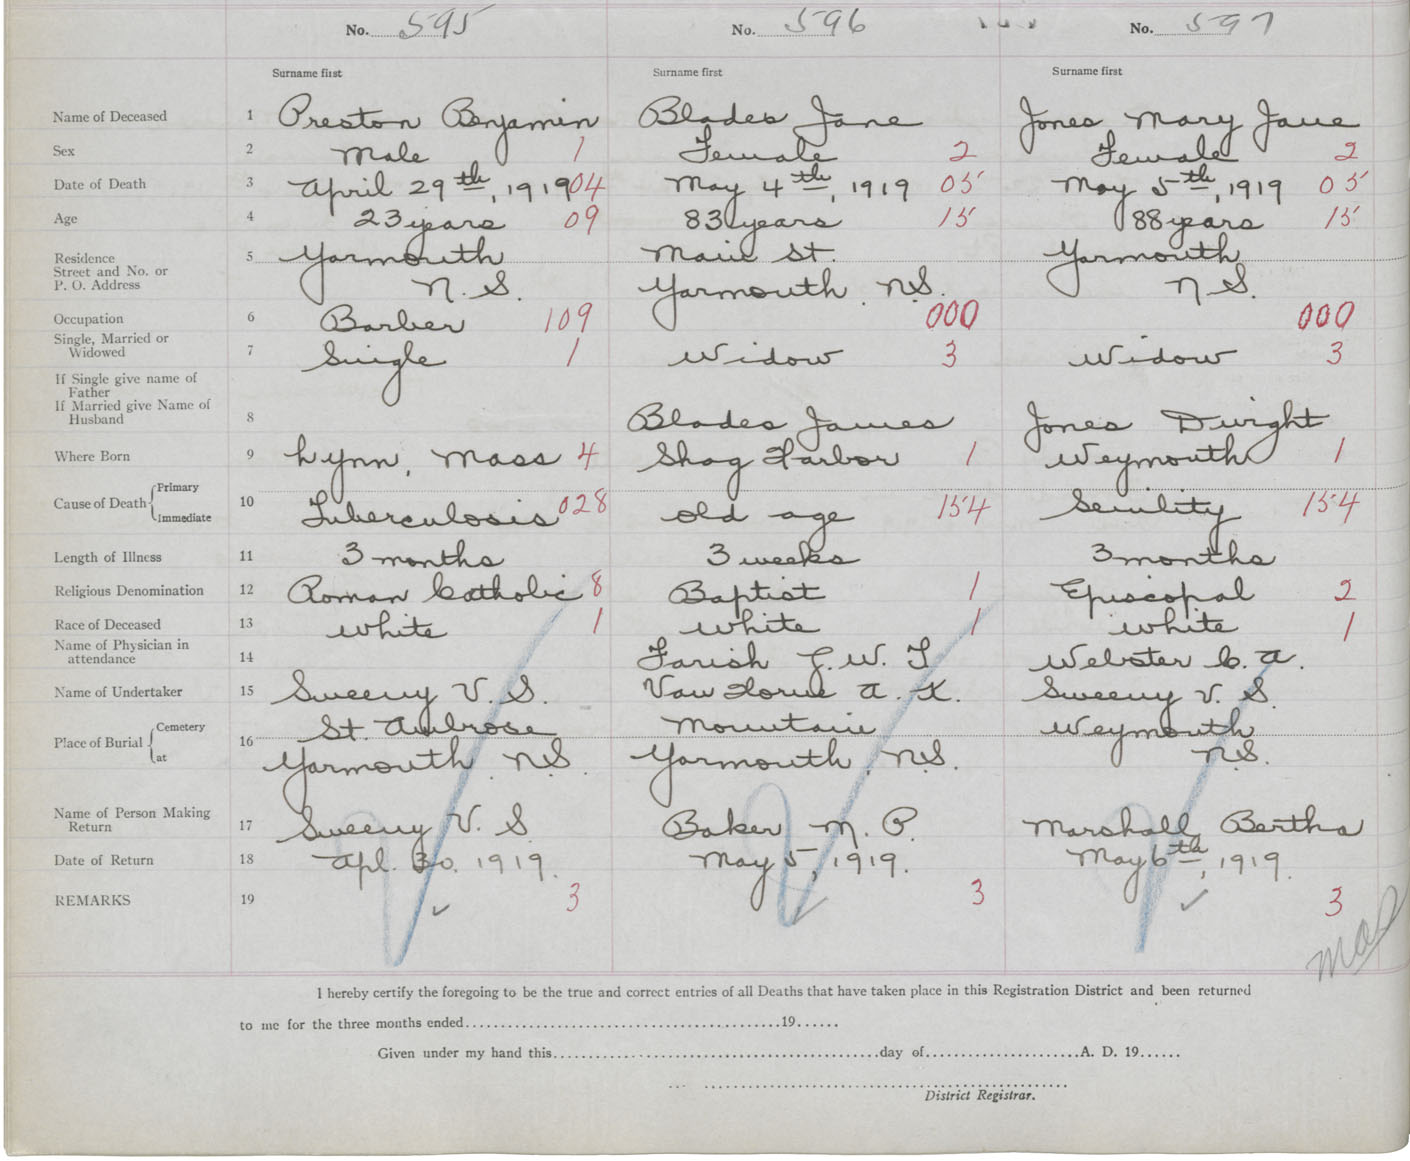 No. 595 No. 596 No. 597
Surname first Surname first Surname first
Name of Deceased 1 Preston Benjamin Blades Jane Jones Mary Jane
Sex 2 Male 1 Female 2 Female 2
Date of Death 3 April 29th, 1919 04 May 4th, 1919 05 May 5th, 1919 05
Age 4 23 years 09 83 years 15 88 years 15
Residence 5 Yarmouth Main St. Yarmouth
Street and No. or
P. O. Address N.S. Yarmouth N.S. N S.
Occupation 6 Barber 109 000 000
Single, Married or
Widowed 7 Single 1 Widow 3 Widow 3
If Single give name of
Father
If Married give Name of
Husband 8 Blades James Jones Dwight
Where Born 9 Lynn, Mass 4 Shag Harbor 1 Weymouth 1
Cause of Death Primary
Immediate 10 Tuberculosis 028 old age 154 Senility 154
Length of Illness 11 3 months 3 weeks 3 months
Religious Denomination 12 Roman Catholic 8 Baptist 1 Episcopal 2
Race of Deceased 13 white 1 white 1 white 1
Name of Physician in
attendance 14 Farish G. W. T Webster C. A.
Name of Undertaker 15 Sweeny V. S. Van Horne A. K. Sweeny V. S.
Place of Burial Cemetery 16 St. Ambrose Mountain Weymouth
at Yarmouth N.S. Yarmouth, N.S. N.S.
Name of Person Making
Return 17 Sweeny V. S Baker M. P. Marshall, Bertha
Date of Return 18 Apl. 30. 1919. May 5, 1919. May 6th, 1919.
REMARKS 19 3 3 3
I hereby certify the foregoing to be the true and correct entries of all Deaths that have taken place in this Registration District and been returned
to me for the three months ended 19
Given under my hand this day of A. D. 19
District Registrar.